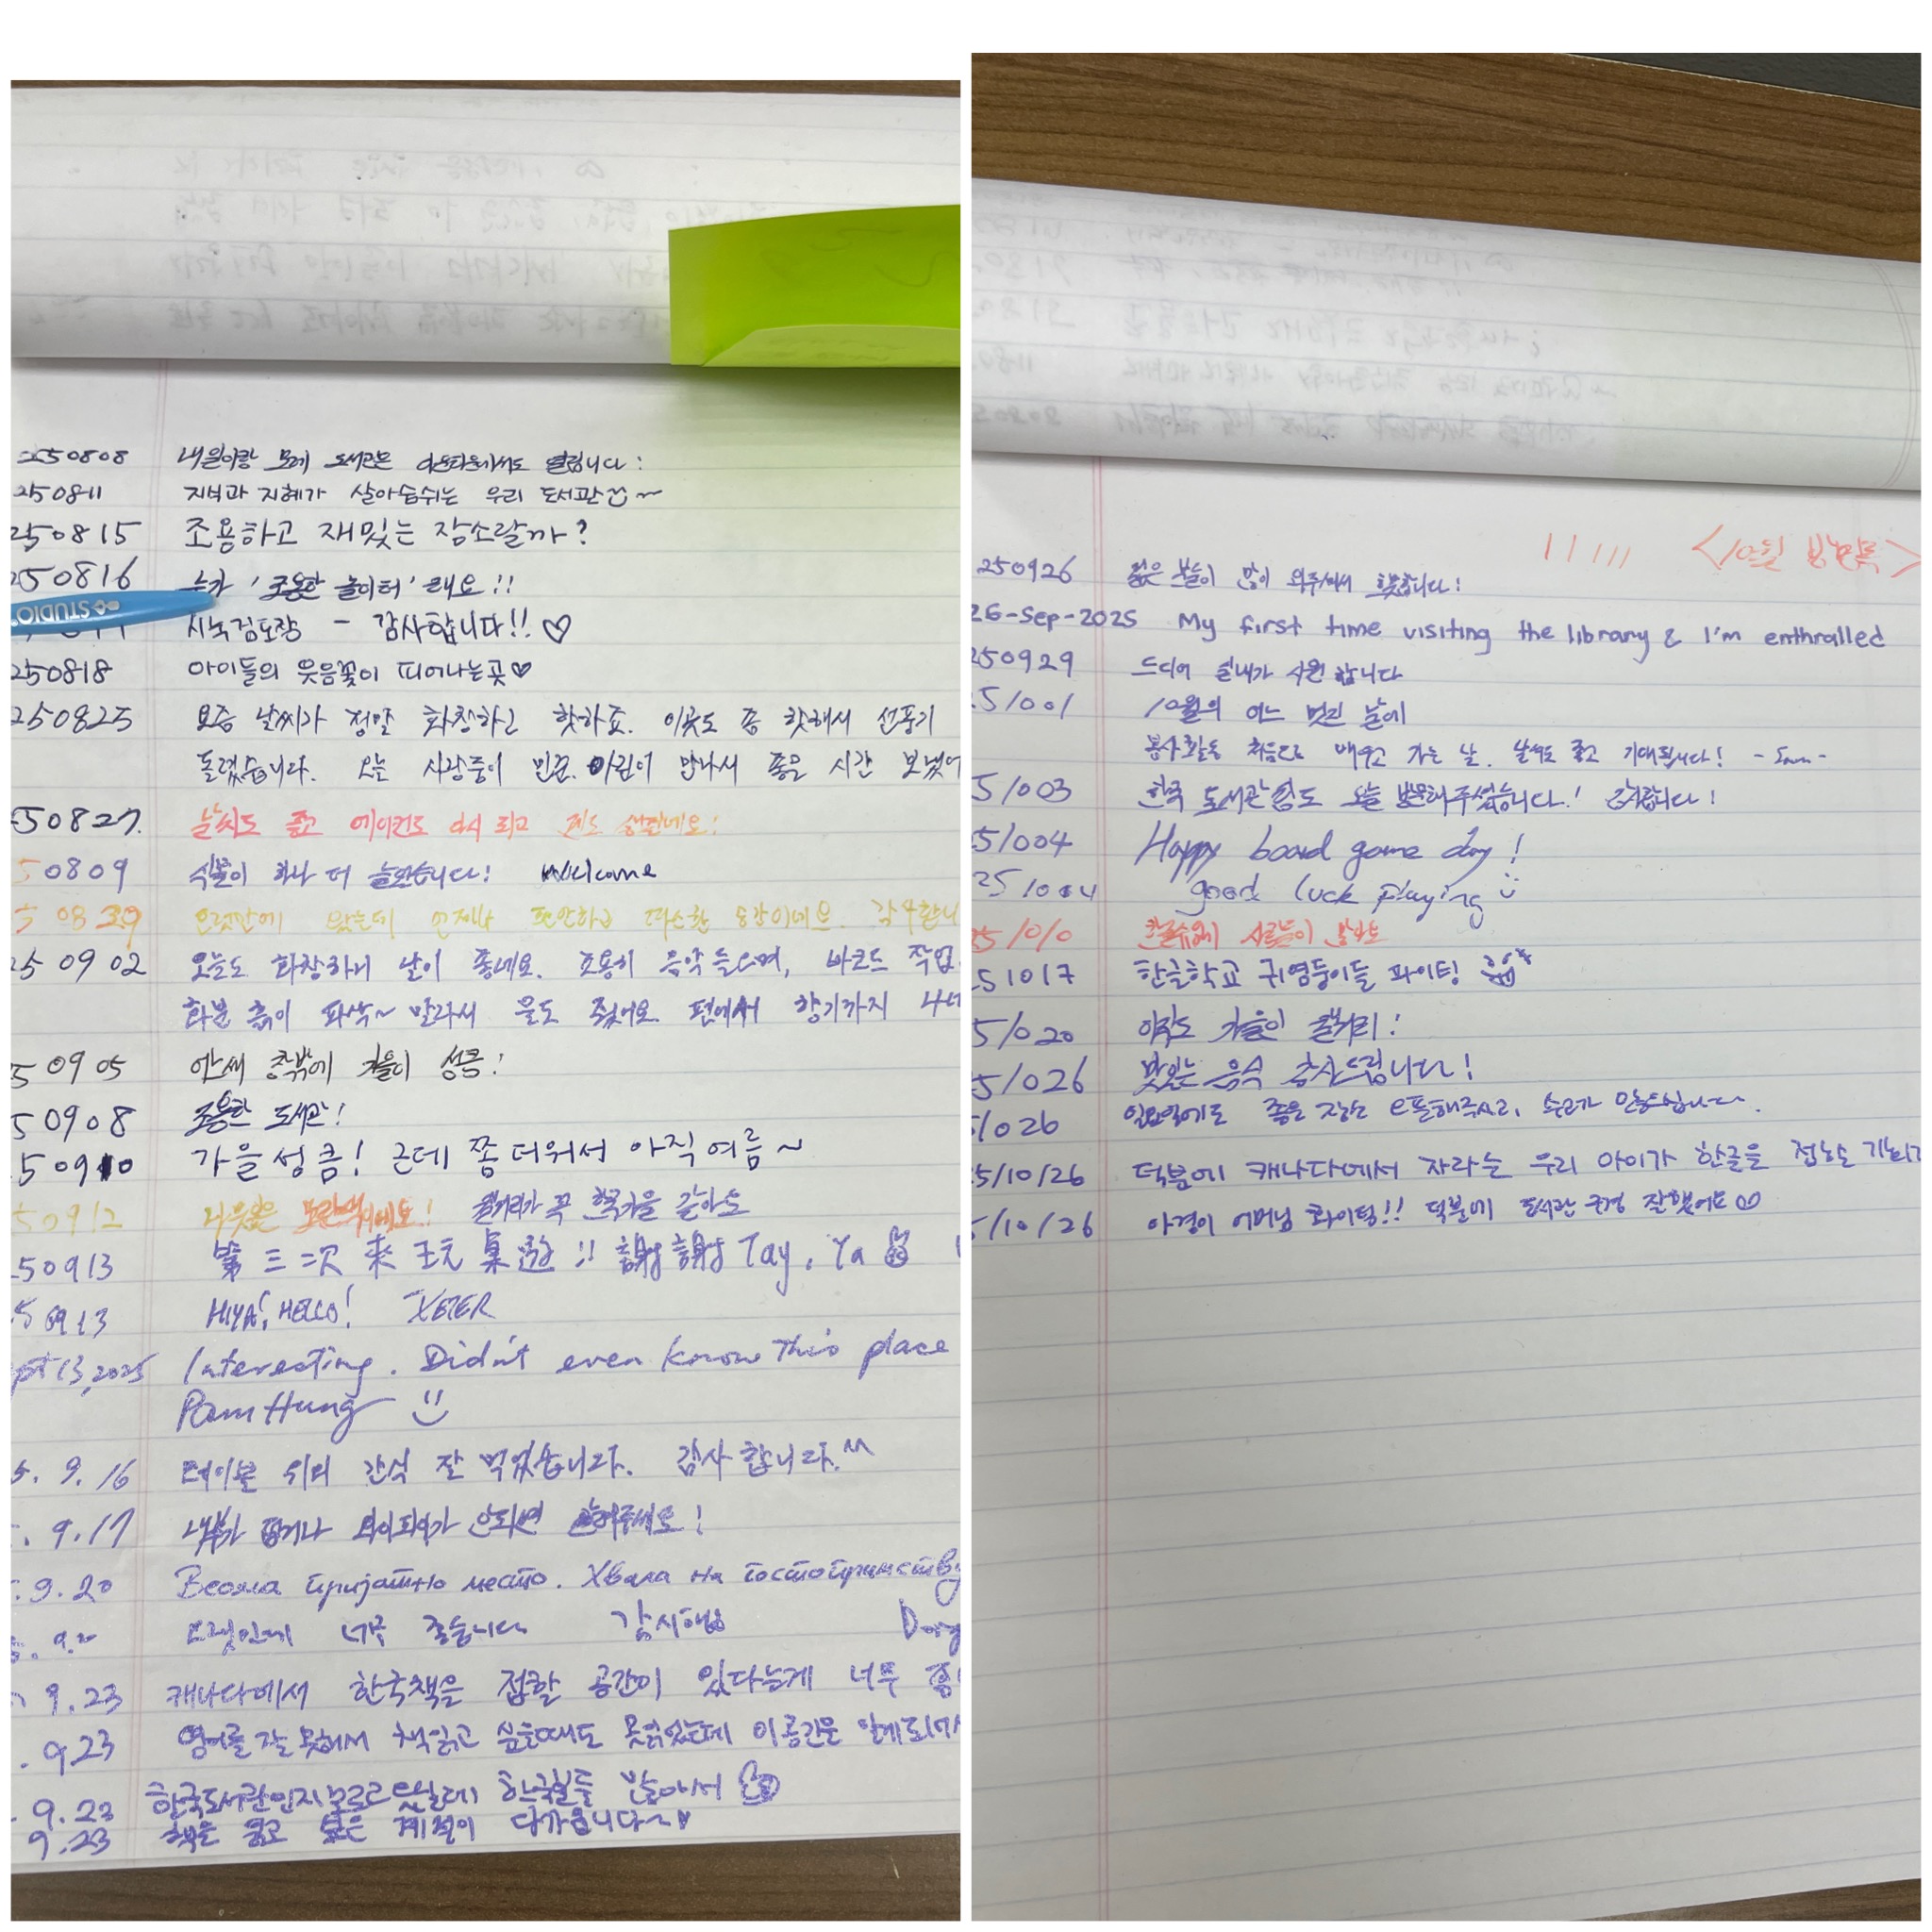 250808 내일이랑 모레 도서관은 다운타운에서도 열립니다!
250811 지식과 지혜가 살아숨쉬는 우리 도서관~
250815 조용하고 재밌는 장소랄까?
250816 누가 '조용한 놀이터'래요!!
STUDIO
검도장 - 감사합니다!! ♡
250818 아이들의 웃음꽃이 띠어나는곳♡
250825 요즘 날씨가 정말 화창하고 핫하죠. 이곳도 좀 핫해서 선풍기
돌렸습니다. 오늘 사랑둥이 민준 어린이 만나서 좋은 시간 보냈어
50827. 날씨도 좋고 에어컨도 다시 되고
50809 식물이 하나 더 늘었습니다! Welcome
0839 오랫만에 왔는데 언제나 편안하고 따스한 공간이네요. 감사합니
25 0902 오늘도 화창하니 날이 좋네요. 조용히 음악 들으며, 바코드 작업
화분 흙이 파삭~ 말라서 물도 줬어요. 편에서 향기까지
50905 어느새 창밖에 가을이 성큼!
50908 조용한 도서관!
50910 가을성큼! 근데 쫌 더워서 아직여름~
50912 캘거리가 꼭 한국가을 같아요
50913 第三次來玩桌遊!! 謝謝 Tay, Ya
5 0913 HIYA! HELLO! XETER
pt 13, 2025 Interesting. Didn't even know this place
Pam Hung
5. 9. 16 테이블 위의 간식 잘 먹었습니다. 감사합니다. ^^
. 9. 17 내부가 덥거나 와이파이가 안되면 말해주세요!
. 9. 20 Веома пријатно место. Хвала на гостопримству
. 9.2 오랫만에 너무 좋습니다 감사해요
9.23 캐나다에서 한국책을 접할 공간이 있다는게 너무
. 9.23 영어를 잘 못해서 책읽고 싶을때도 못읽었는데 이공간을 알게되어서
. 9.23 한국도서관인지 모르고 한국분들 많아서
9.23 책을 읽고 싶은 계절이 다가옵니다~♥
<10월 방명록>
250926 젊은 분들이 많이 와주셔서 훗훗합니다!
26-Sep-2025 My first time visiting the library & I'm enthralled
250929 드디어 실내가 시원합니다
51001 10월의 어느 멋진 날에
봉사활동 처음으로 배우고 가는 날. 날씨도 좋고 기대됩니다! - Sam -
51003 한국 도서관 오늘 방문해주셨습니다! 감사합니다!
51004 Happy board game day!
251004 good luck playing
51010 사람들이
51017 한글학교 귀염둥이들 파이팅!
51020 아직도 가을인 캘거리!
51026 맛있는 음식 감사드립니다!
1026 일요일에도 좋은 장소 오픈해주시고,
5/10/26 덕분에 캐나다에서 자라는 우리 아이가 한글을 접하는
5/10/26 아경이 어머님 화이팅!! 덕분에 도서관 구경 잘했어요